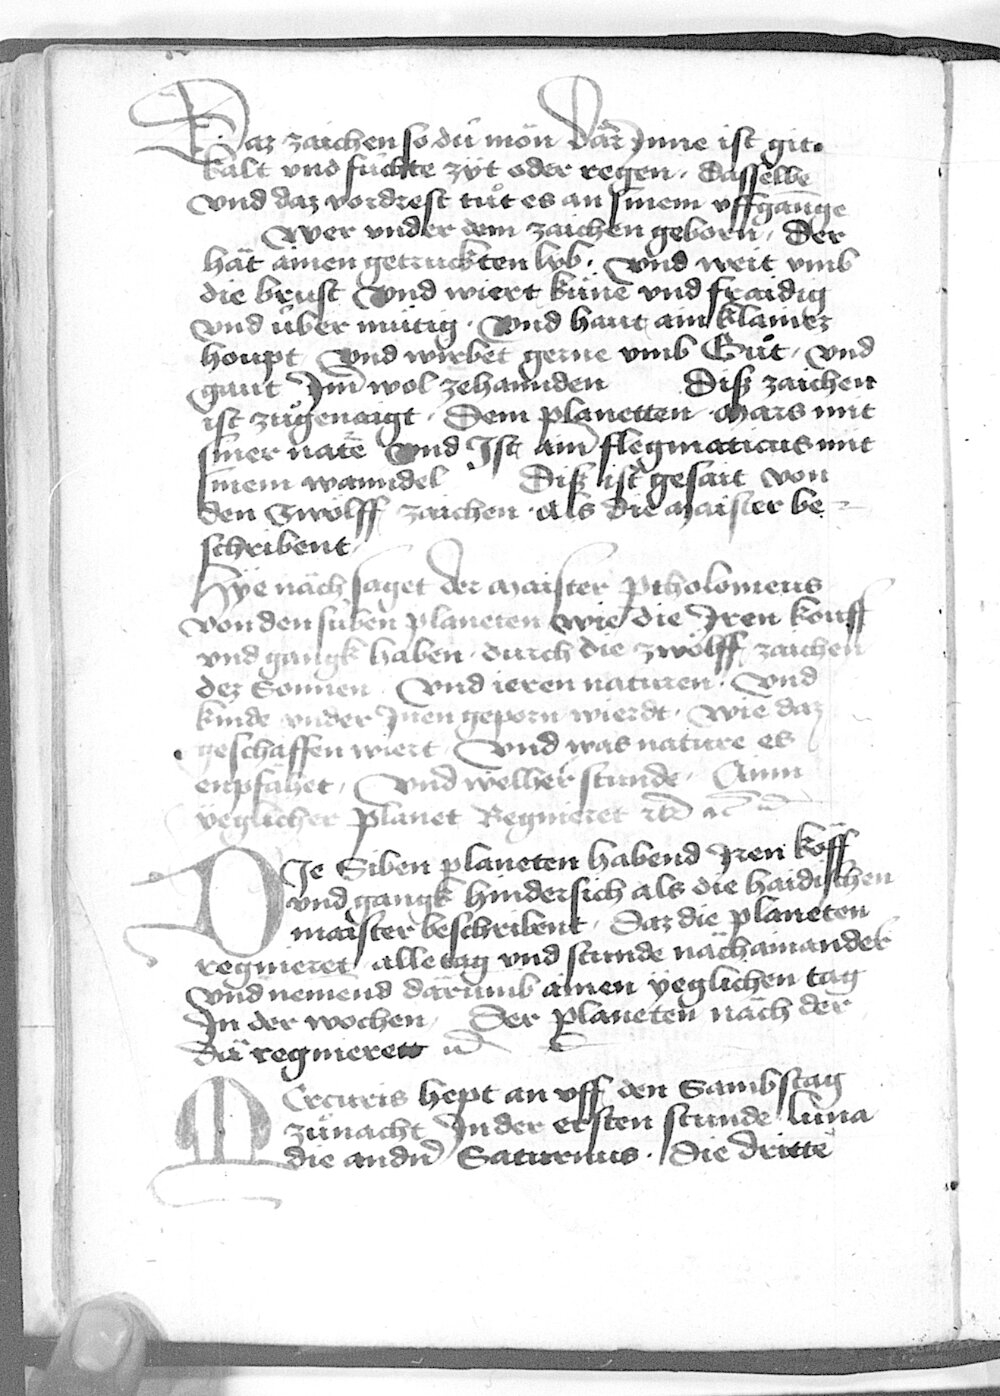 Daz zaichen so dü mön Dar Jnne ist git
kalt vnd füchte zyt oder regen · dasselbe
vnd daz vordrest tůt es an sinem vffgange
Wer vnder dem zaichen geborn / Der
hät ainen getruckten lyb · vnd weit vmb
die brust Vnd wiert küne vnd fraidig
vnd über mütig · Vnd haut ain klainez
houpt Vnd wirbet gerne vmb Gůt / vnd
gaut Jm wol zehannden Disz zaichen
ist zůgenaigt · Dem planetten · Mars mit
siner natë Vnd Jst ain flegmaticus mit
sinem wanndel Disz ist gesait von
den Zwölff zaichen · Als die Maister be
schribent
Hÿe näch saget der Maister Ptholomeus
von den süben planeten wie die Jren kouff
vnd gangk haben · durch die zwölff zaichen
dez Sonnen · Vnd ieren naturen · Vnd
kinde vnder Jnen geporn wierdt · Wie daz
geschaffen wiert / Vnd was nature es
enpfähet / Vnd welher stunde / Ainn
yeglicher planet Regnieret
DJe Siben planeten habend Jren köff
vnd gangk hindersich als die haidischen
maister beschribent / Daz die planeten
regnieret / alle tag vnd stunde nächainander
vnd nemend därumb ainen ÿeglichen tag
Jn der wochen / Der planeten näch der
dü regnierett
MErcuris hept an vff den Sambstag
zünacht Jn der ersten stunde luna
die andn̄ Saturnus · Die dritte